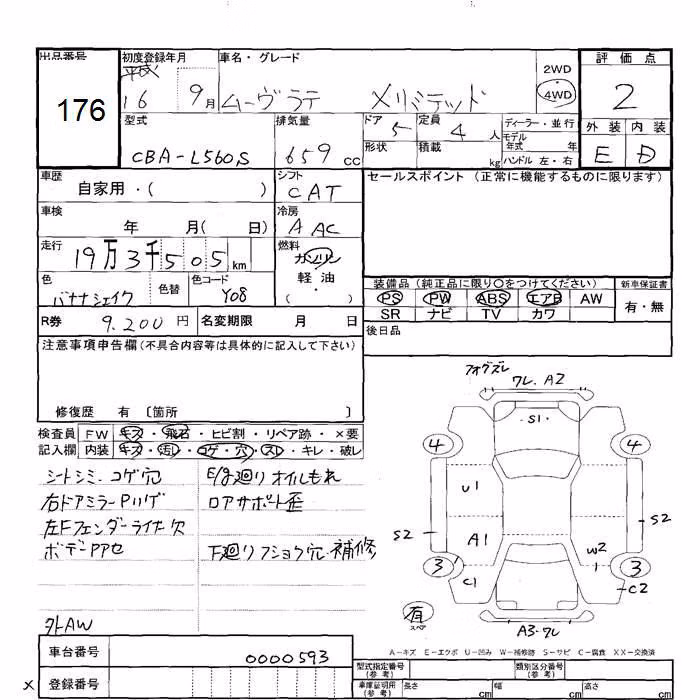 出品番号 初度登録年月 車名・グレード 評価点
176
平成 16 9月 ムーヴラテ Xリミテッド 2WD 4WD 2
型式 排気量 ドア 5 定員 4人 ディーラー・並行 外装 内装
CBA-L560S 659cc 形状 積載 kg モデル年式 年 ハンドル 左・右 E D
車歴 自家用・( ) シフト CAT セールスポイント (正常に機能するものに限ります)
車検 年 月( 日) 冷房 AAC
走行 19万3千505km 燃料 ガソリン 軽油・( )
色 バナナシェイク 色替 色コード Y08
装備品 (純正品に限り〇をつけてください) 新車保証書
PS PW ABS エアB AW 有・無
SR ナビ TV カワ
R券 9,200円 名変期限 月 日 後日品
注意事項申告欄(不具合内容等は具体的に記入して下さい)
修復歴 有 〔箇所 〕
検査員 FW キズ・飛石・ヒビ割・リペア跡・×要
記入欄 内装 キズ・汚れ・コゲ・穴・スレ・キレ・破レ
シートシミ.コゲ穴 E/g廻りオイルもれ
右ドアミラーPハゲ ロアサポート歪
左Fフェンダーライナー欠
ボデーPアセ 下廻りフショク穴・補修
外AW
フォグズレ
ワレ.A2
S1
4 4
U1
S2 S2
A1 W2
3 3
C1 C2
有
スペア
A3・ワレ
A-キズ E-エクボ U-凹み W-補修跡 S-サビ C-腐食 XX-交換済
車台番号 0000593
X 登録番号
型式指定番号(参考) 類別区分番号(参考)
車庫証明用(参考) 長さ cm 幅 cm 高さ cm